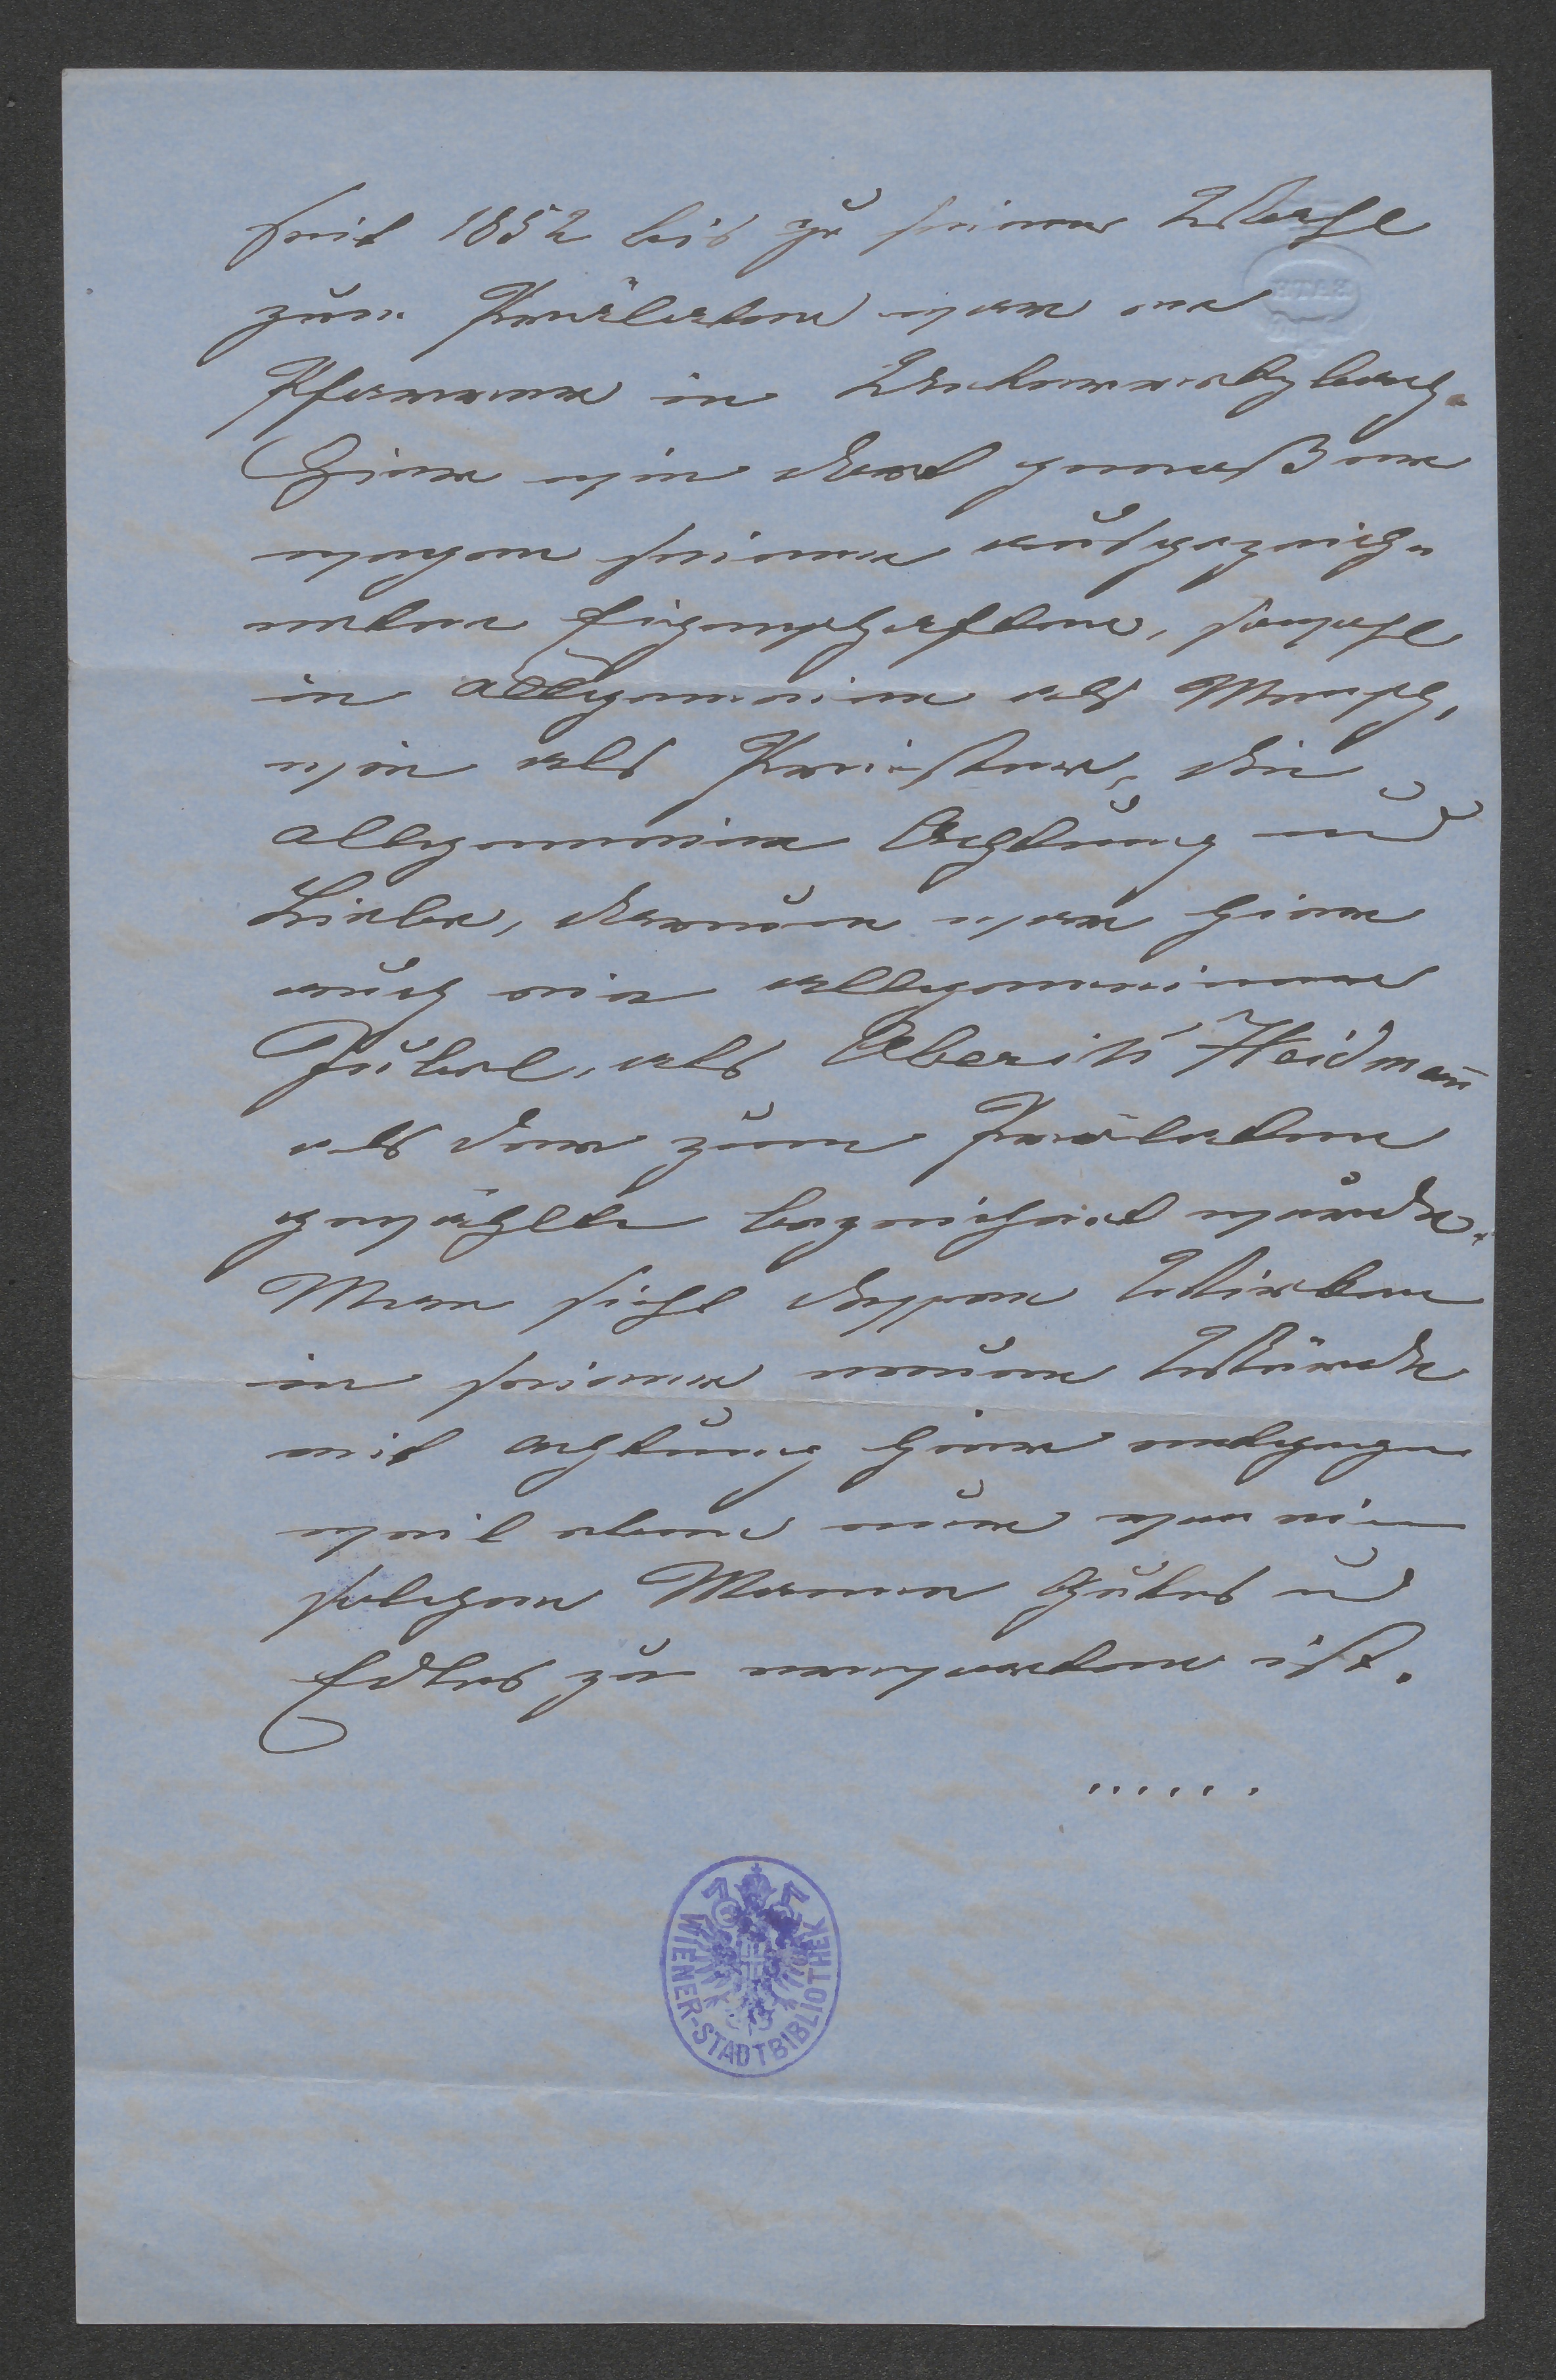 seit 1852 bis zu seiner Wahl
zum Prälaten war er
Pfarrer in
Hier wie dort genoß er
wegen seiner ausgezeich-
neten Eigenschaften, sowohl
im allgemeinen als Mensch,
wie als Priester, die
allgemeine Achtung und
Liebe, darum war hier
auch ein allgemeiner
Jubel, als Alberik Heidman̄
als der zum Prälaten
gewählte bezeichnet wurde.
Man sieht dessen Wirken
in seiner neuen Würde
mit Achtung hier entgegen
weil eben nur von einem
solchen Manne Gutes u
Edles zu erwarten ist.
......
WIENER-STADTBIBLIOTHEK
BATH